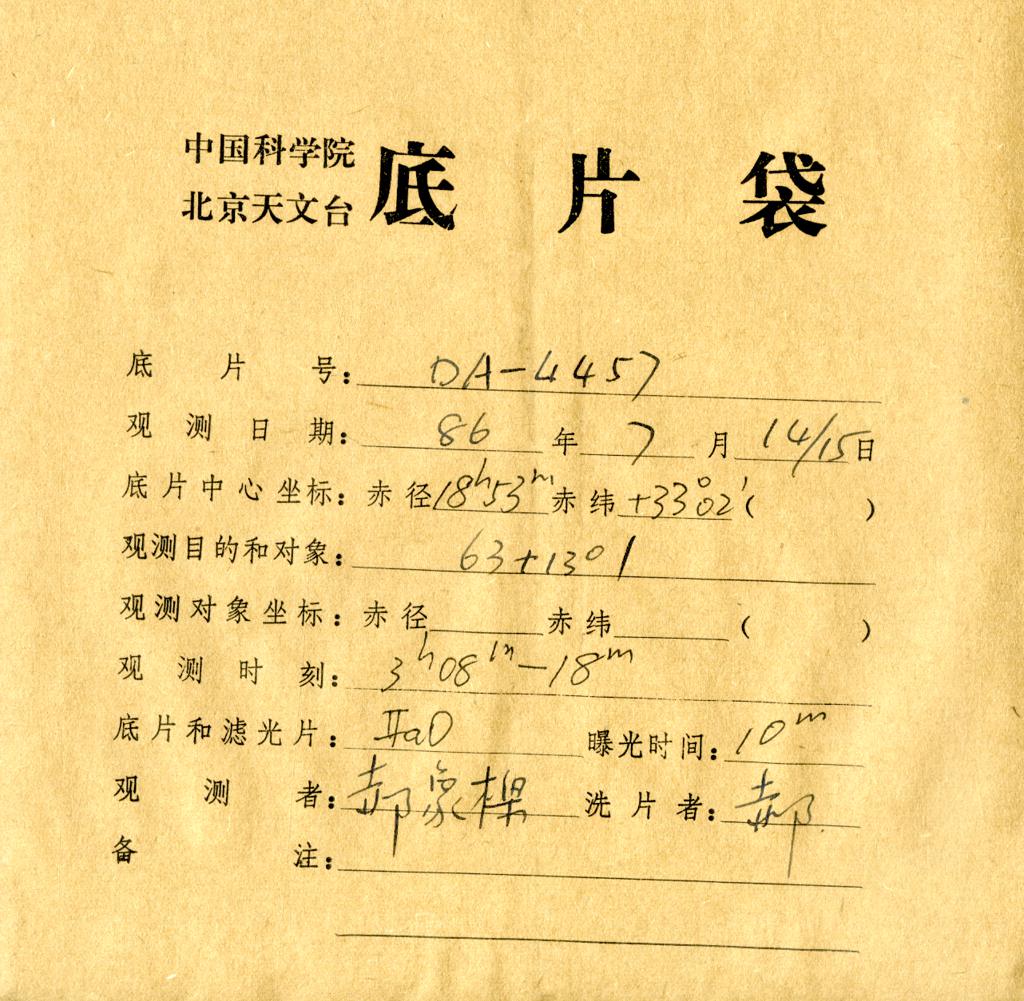 中国科学院
北京天文台 底片袋
底片号: DA-4457
观测日期: 86 年 7 月 14/15 日
底片中心坐标: 赤径 18ʰ53ᵐ 赤纬 +33°02′ ( )
观测目的和对象: 63+13°1
观测对象坐标: 赤径 赤纬 ( )
观测时刻: 3ʰ08ᵐ-18ᵐ
底片和滤光片: IIaO 曝光时间: 10ᵐ
观测者: 郝象樑 洗片者: 郝
备注: